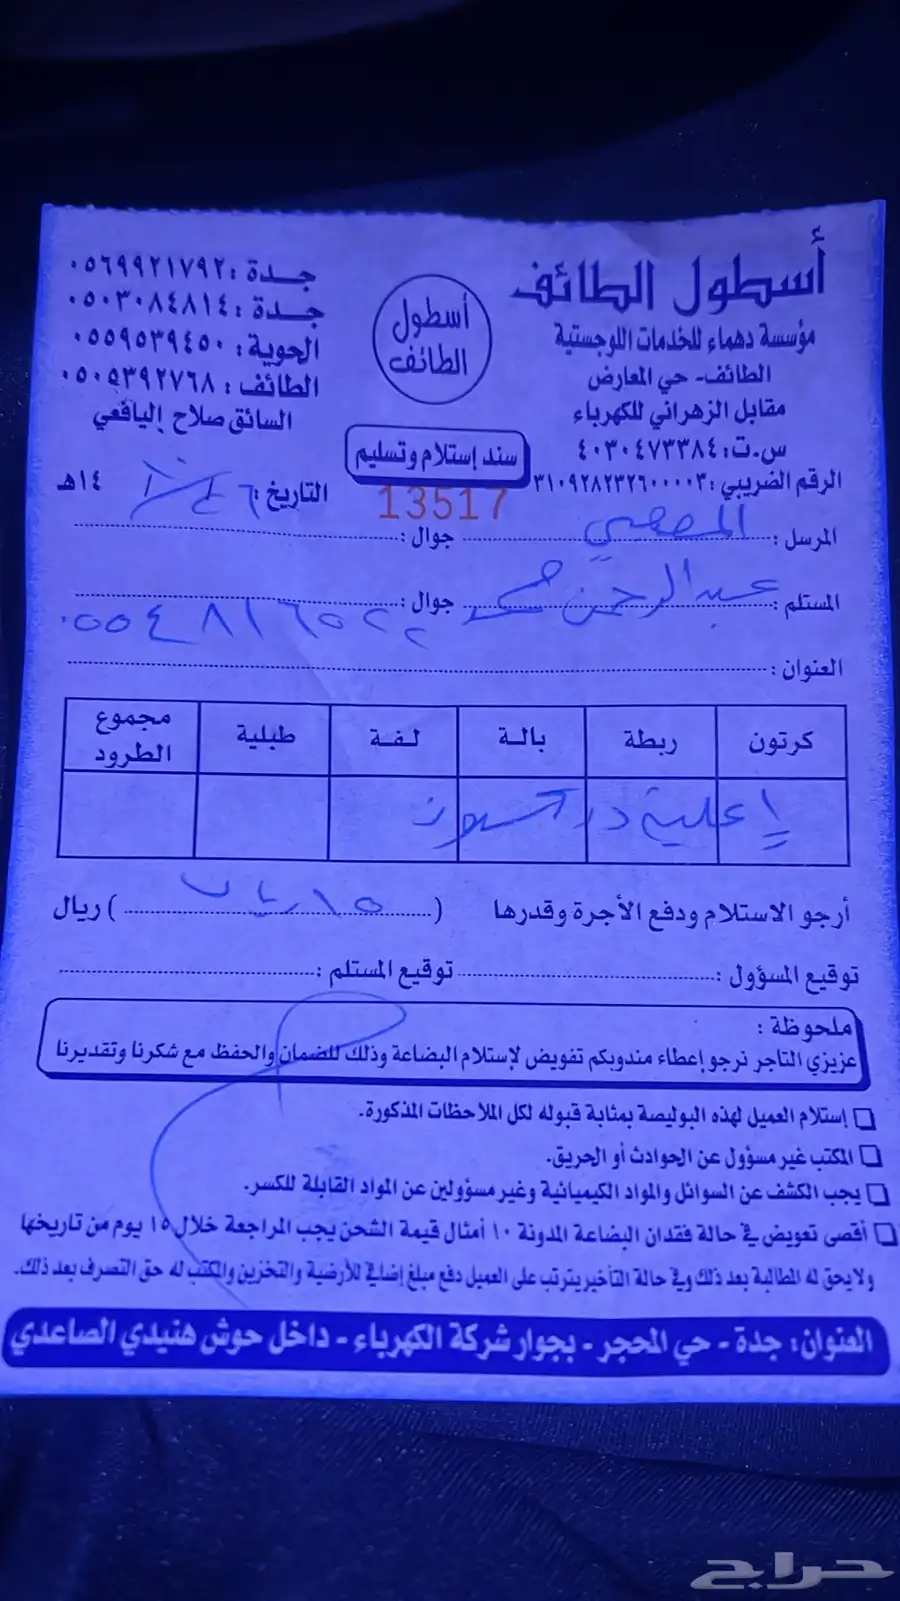 أسطول الطائف
مؤسسة دهماء للخدمات اللوجستية
الطائف- حي المعارض
مقابل الزهراني للكهرباء
س.ت: ٤٠٣٠٤٧٣٣٨٤
الرقم الضريبي: ٣١٠٩٢٨٢٣٢٦٠٠٠٠٣
أسطول
الطائف
سند إستلام وتسليم
13517
جدة: ٠٥٦٩٩٢١٧٩٢
جدة: ٠٥٠٣٠٨٤٨١٤
الحوية: ٠٥٥٩٥٣٩٤٥٠
الطائف: ٠٥٠٥٣٩٢٧٦٨
السائق صلاح اليافعي
التاريخ: ١٤هـ
المرسل: جوال:
المستلم: عبدالرحمن جوال: ٠٥٥٤٨١٦٥٢٢
العنوان:
كرتون ربطة بالة لفة طبلية مجموع الطرود
١ علبة
أرجو الاستلام ودفع الأجرة وقدرها ( ١٥ ريال ) ريال
توقيع المسؤول: توقيع المستلم:
ملحوظة:
عزيزي التاجر نرجو إعطاء مندوبكم تفويض لإستلام البضاعة وذلك للضمان والحفظ مع شكرنا وتقديرنا
إستلام العميل لهذه البوليصة بمثابة قبوله لكل الملاحظات المذكورة.
المكتب غير مسؤول عن الحوادث أو الحريق.
يجب الكشف عن السوائل والمواد الكيميائية وغير مسؤولين عن المواد القابلة للكسر.
أقصى تعويض في حالة فقدان البضاعة المدونة ١٠ أمثال قيمة الشحن يجب المراجعة خلال ١٥ يوم من تاريخها
ولا يحق له المطالبة بعد ذلك وفي حالة التأخير يترتب على العميل دفع مبلغ إضافي للأرضية والتخزين والمكتب له حق التصرف بعد ذلك.
العنوان: جدة - حي المحجر - بجوار شركة الكهرباء - داخل حوش هنيدي الصاعدي
حراج